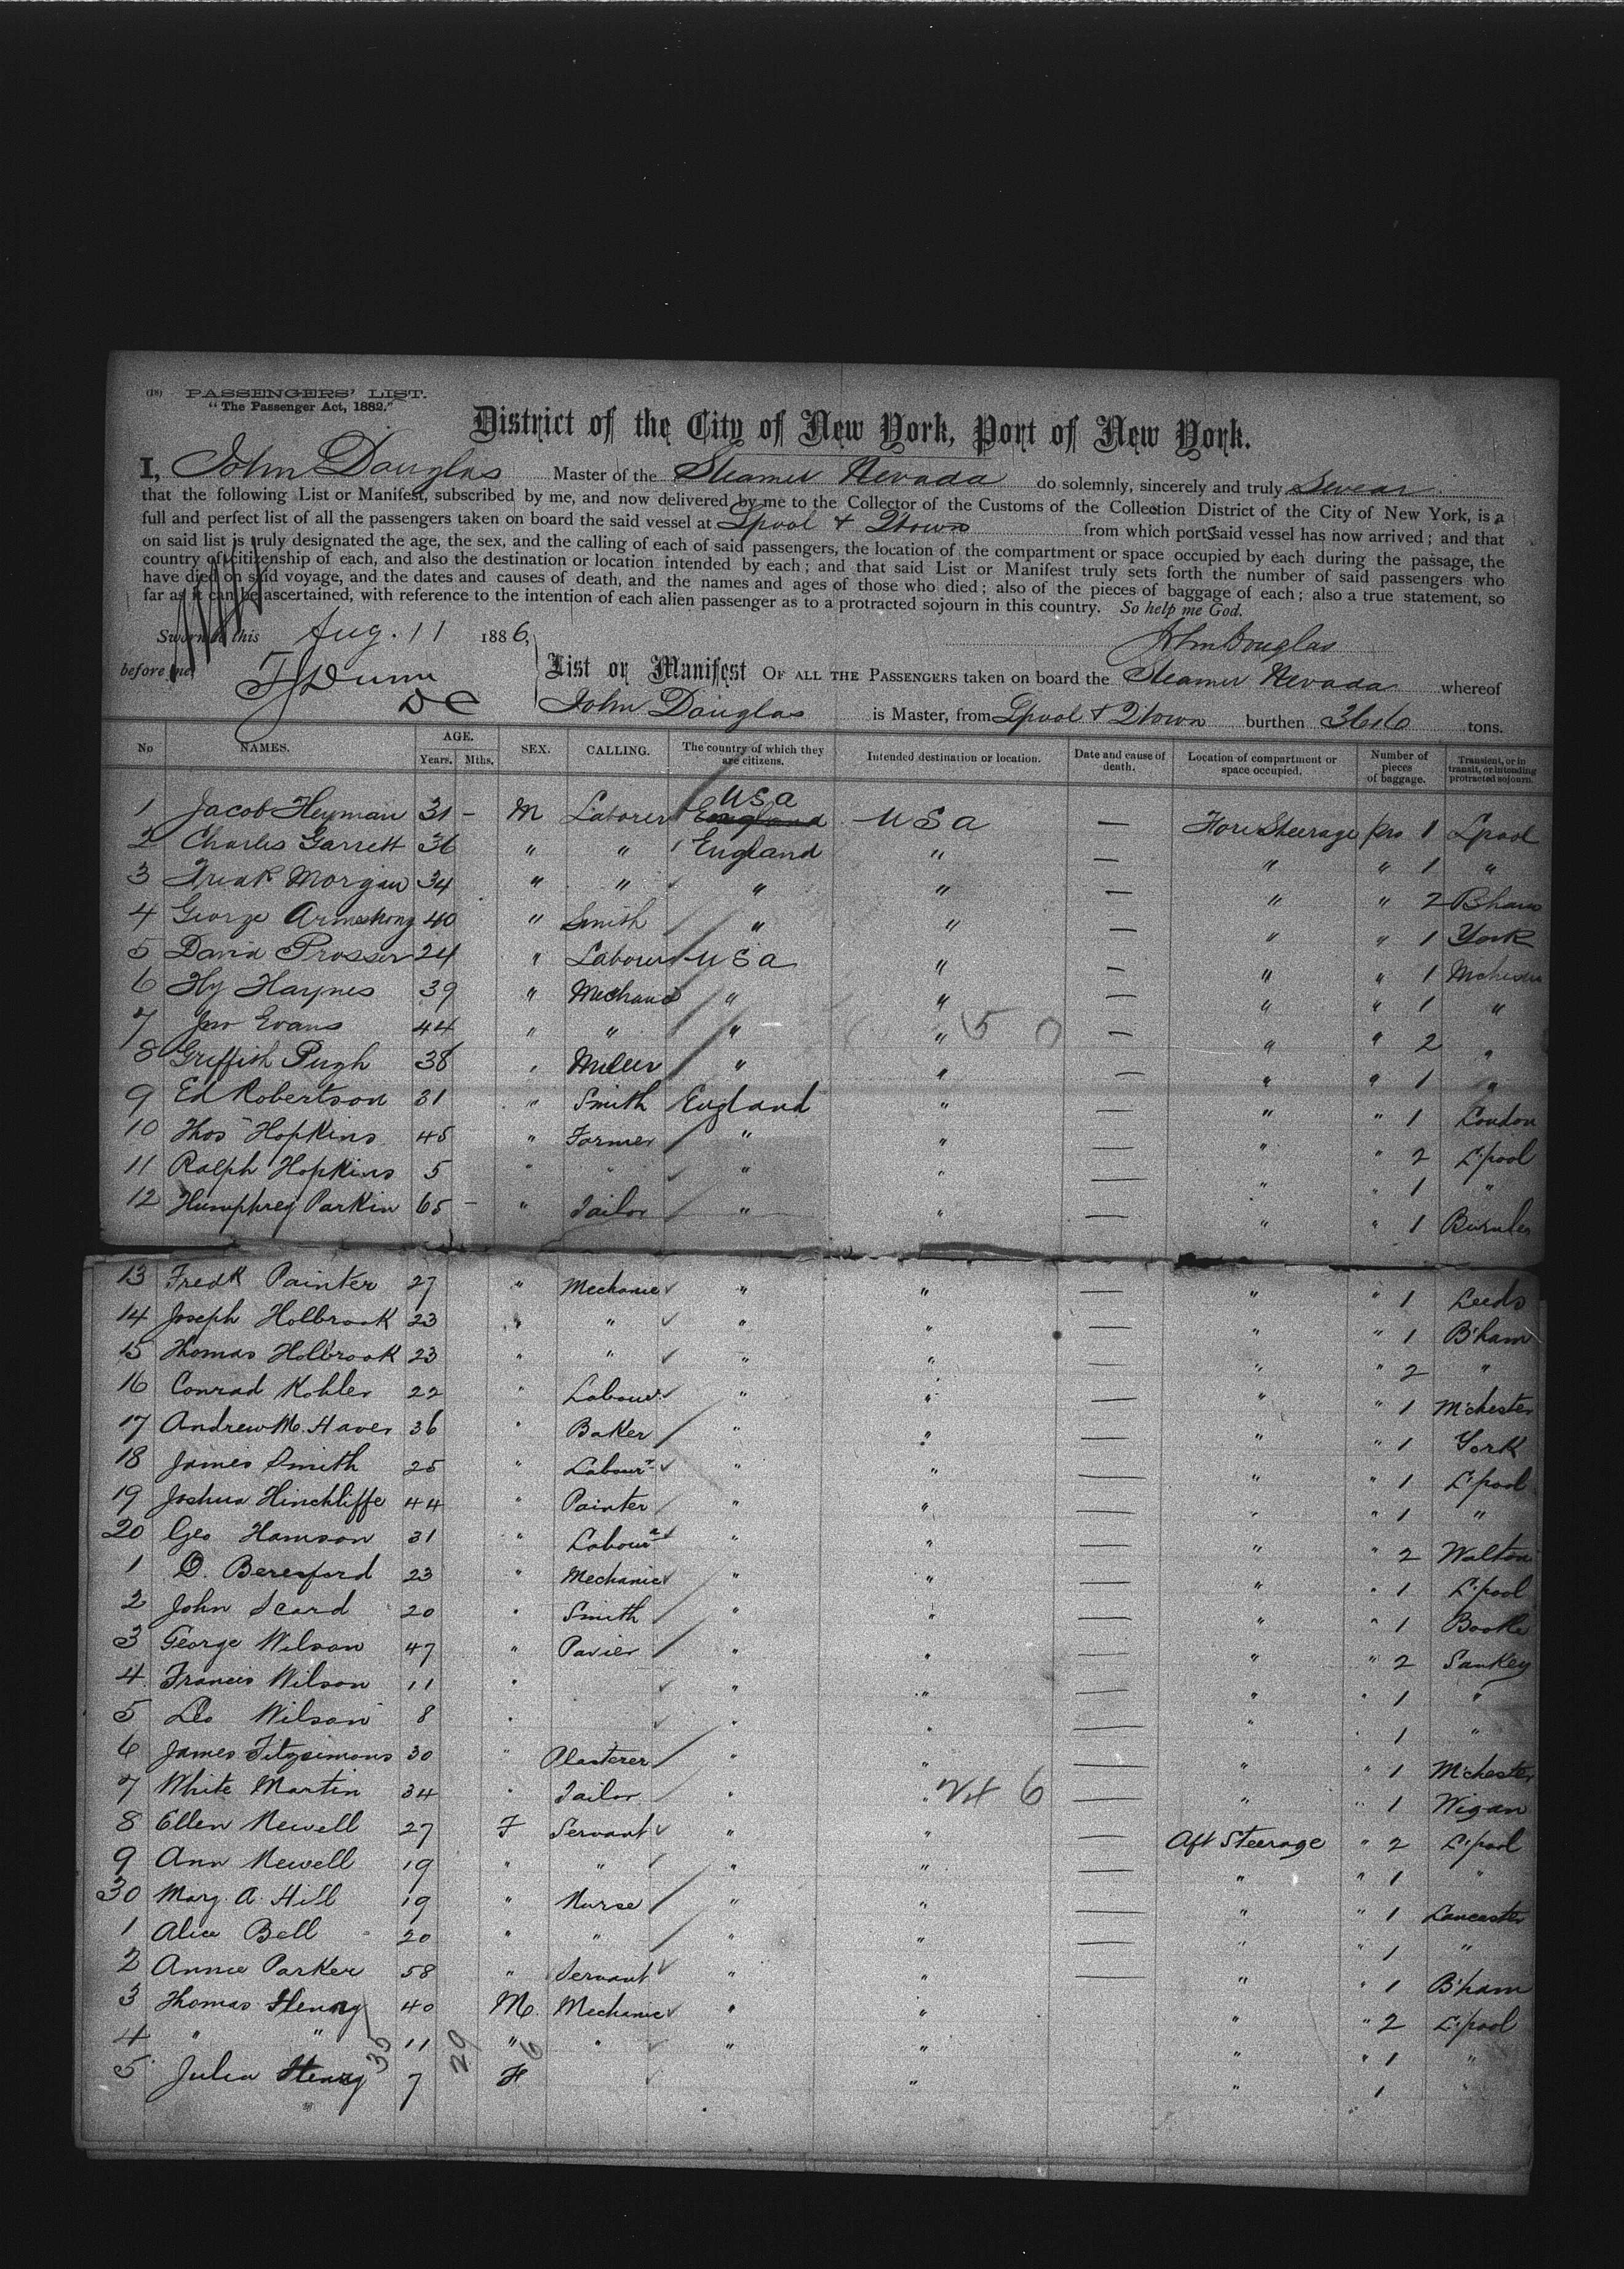 (18) PASSENGERS' LIST.
"The Passenger Act, 1882."
District of the City of New York, Port of New York.
I, John Douglas Master of the Steamer Nevada do solemnly, sincerely and truly Swear
that the following List or Manifest, subscribed by me, and now delivered by me to the Collector of the Customs of the Collection District of the City of New York, is a
full and perfect list of all the passengers taken on board the said vessel at Lpool & Qtown from which ports said vessel has now arrived; and that
on said list is truly designated the age, the sex, and the calling of each of said passengers, the location of the compartment or space occupied by each during the passage, the
country of citizenship of each, and also the destination or location intended by each; and that said List or Manifest truly sets forth the number of said passengers who
have died on said voyage, and the dates and causes of death, and the names and ages of those who died; also of the pieces of baggage of each; also a true statement, so
far as it can be ascertained, with reference to the intention of each alien passenger as to a protracted sojourn in this country. So help me God.
Sworn to this Aug. 11 1886, John Douglas
before me F J Dunn
DC
List or Manifest OF ALL THE PASSENGERS taken on board the Steamer Nevada whereof
John Douglas is Master, from Lpool & Qtown burthen 3616 tons.
No NAMES. AGE. Years. Mths. SEX. CALLING. The country of which they are citizens. Intended destination or location. Date and cause of death. Location of compartment or space occupied. Number of pieces of baggage. Transient, or in transit, or intending protracted sojourn.
1 Jacob Heyman 31 - M Laborer England USa USa — Fore Steerage pro 1 Lpool
2 Charles Garrett 36 " " England " — " " 1 "
3 Fredk Morgan 34 " " " " — " " 2 Bham
4 George Armstrong 40 " Smith " " — " " 1 York
5 David Prosser 24 " Labourer USa " — " " 1 Mchester
6 Hy Haynes 39 " Mechanic " " — " " 1 "
7 Jno Evans 44 " " " " 50 — " " 2 "
8 Griffith Pugh 38 " Miller " " — " " 1 "
9 Ed Robertson 31 " Smith England " — " " 1 London
10 Thos Hopkins 45 " Farmer " " — " " 2 L'pool
11 Ralph Hopkins 5 " " " " — " " 1 "
12 Humphrey Parkin 65 - " Tailor " " — " " 1
13 Fredk Painter 27 " Mechanic " " — " " 1 Leeds
14 Joseph Holbrook 23 " " " " — " " 1 B'ham
15 Thomas Holbrook 23 " " " " — " " 2 "
16 Conrad Kohler 22 " Labour " " — " " 1 M'chester
17 Andrew M. Haver 36 " Baker " " — " " 1 York
18 James Smith 25 " Labourr " " — " " 1 L'pool
19 Joshua Hinchliffe 44 " Painter " " — " " 1 "
20 Geo Hamson 31 " Labourr " " — " " 2 Walton
1 O. Beresford 23 " Mechanic " " — " " 1 L'pool
2 John Scard 20 " Smith " " — " " 1 Bootle
3 George Wilson 47 " Pavier " " — " " 2 Sankey
4 Frances Wilson 11 " " " — " " 1 "
5 Leo Wilson 8 " " " — " " 1 "
6 James Fitzsimons 30 " Plasterer " " — " " 1 M'chester
7 White Martin 34 " Tailor " " 6 — " " 1 Wigan
8 Ellen Newell 27 F Servant " " — Aft Steerage " 2 L'pool
9 Ann Newell 19 " " " " — " " 1 "
30 Mary A. Hill 19 " Nurse " " — " " 1 Lancaster
1 Alice Bell 20 " " " " — " " 1 "
2 Annie Parker 58 " Servant " " — " " 1 B'ham
3 Thomas Henry 40 M. Mechanic " " " " 2 L'pool
4 " " 11 " " " " " " 1 "
5 Julia Henry 7 F " " 1 "
35 29 6